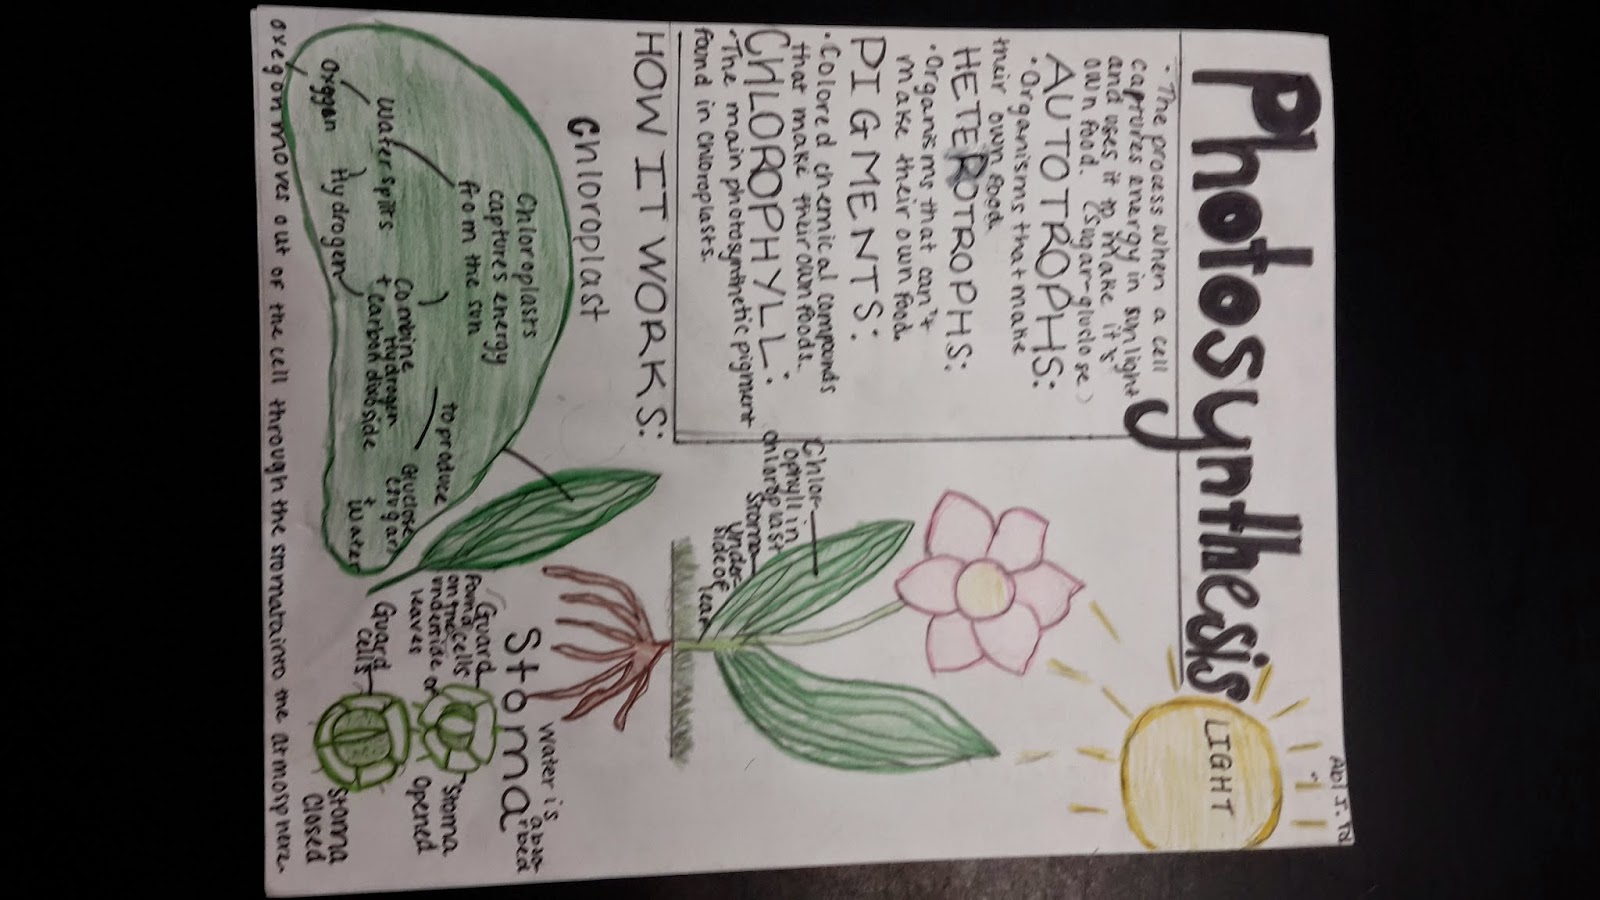 Abi J. Pd
Photosynthesis
LIGHT
• The process when a cell
captures energy in sunlight
and uses it to make it's
own food. (sugar-gluclose)
AUTOTROPHS:
• Organisms that make
their own food
HETEROTROPHS:
• Organisms that can't
make their own food.
PIGMENTS:
• Colored chemical compounds
that make their own foods.
CHLOROPHYLL:
• The main photosynthetic pigment
found in chloroplasts.
Chlor-
ophyll in
chloroplast
Stoma
under-
side of
leaf
HOW IT WORKS:
Chloroplast
Chloroplasts
captures energy
from the sun
Water splits
Oxygen
Hydrogen
Combine
Hydrogen
+ carbon dioxside
to produce
Gluclose
+ water
water is
abso-
rbed
Stoma
Guard
cells
found
on the
underside of
leaves
Stoma
Opened
Guard
cells
Stoma
Closed
oxegon moves out of the cell through the stomata into the atmosphere